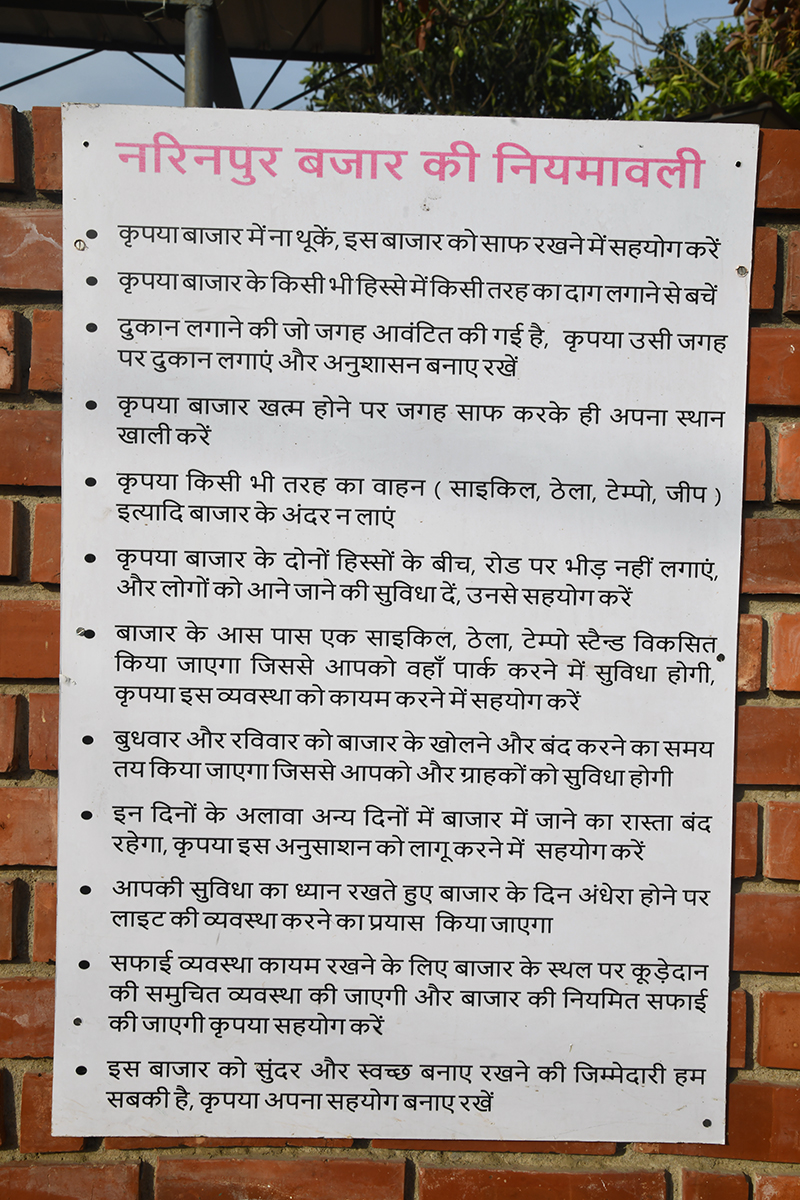 नरिनपुर बजार की नियमावली
• कृपया बाजार में ना थूकें, इस बाजार को साफ रखने में सहयोग करें
• कृपया बाजार के किसी भी हिस्से में किसी तरह का दाग लगाने से बचें
• दुकान लगाने की जो जगह आवंटित की गई है, कृपया उसी जगह
पर दुकान लगाएं और अनुशासन बनाए रखें
• कृपया बाजार खत्म होने पर जगह साफ करके ही अपना स्थान
खाली करें
• कृपया किसी भी तरह का वाहन ( साइकिल, ठेला, टेम्पो, जीप )
इत्यादि बाजार के अंदर न लाएं
• कृपया बाजार के दोनों हिस्सों के बीच, रोड पर भीड़ नहीं लगाएं,
और लोगों को आने जाने की सुविधा दें, उनसे सहयोग करें
• बाजार के आस पास एक साइकिल, ठेला, टेम्पो स्टैन्ड विकसित
किया जाएगा जिससे आपको वहाँ पार्क करने में सुविधा होगी,
कृपया इस व्यवस्था को कायम करने में सहयोग करें
• बुधवार और रविवार को बाजार के खोलने और बंद करने का समय
तय किया जाएगा जिससे आपको और ग्राहकों को सुविधा होगी
• इन दिनों के अलावा अन्य दिनों में बाजार में जाने का रास्ता बंद
रहेगा, कृपया इस अनुसाशन को लागू करने में सहयोग करें
• आपकी सुविधा का ध्यान रखते हुए बाजार के दिन अंधेरा होने पर
लाइट की व्यवस्था करने का प्रयास किया जाएगा
• सफाई व्यवस्था कायम रखने के लिए बाजार के स्थल पर कूड़ेदान
की समुचित व्यवस्था की जाएगी और बाजार की नियमित सफाई
की जाएगी कृपया सहयोग करें
• इस बाजार को सुंदर और स्वच्छ बनाए रखने की जिम्मेदारी हम
सबकी है, कृपया अपना सहयोग बनाए रखें